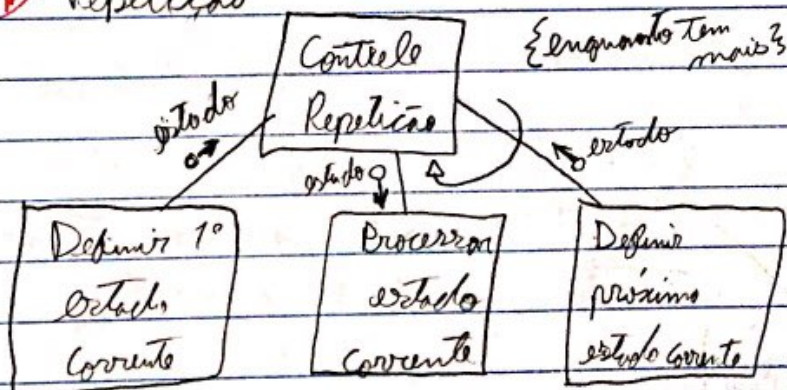 Repetição
Controle
Repetição
{enquanto tem
mais}
estado
estado
estado
Definir 1º
estado
corrente
Processar
estado
corrente
Definir
próximo
estado corrente